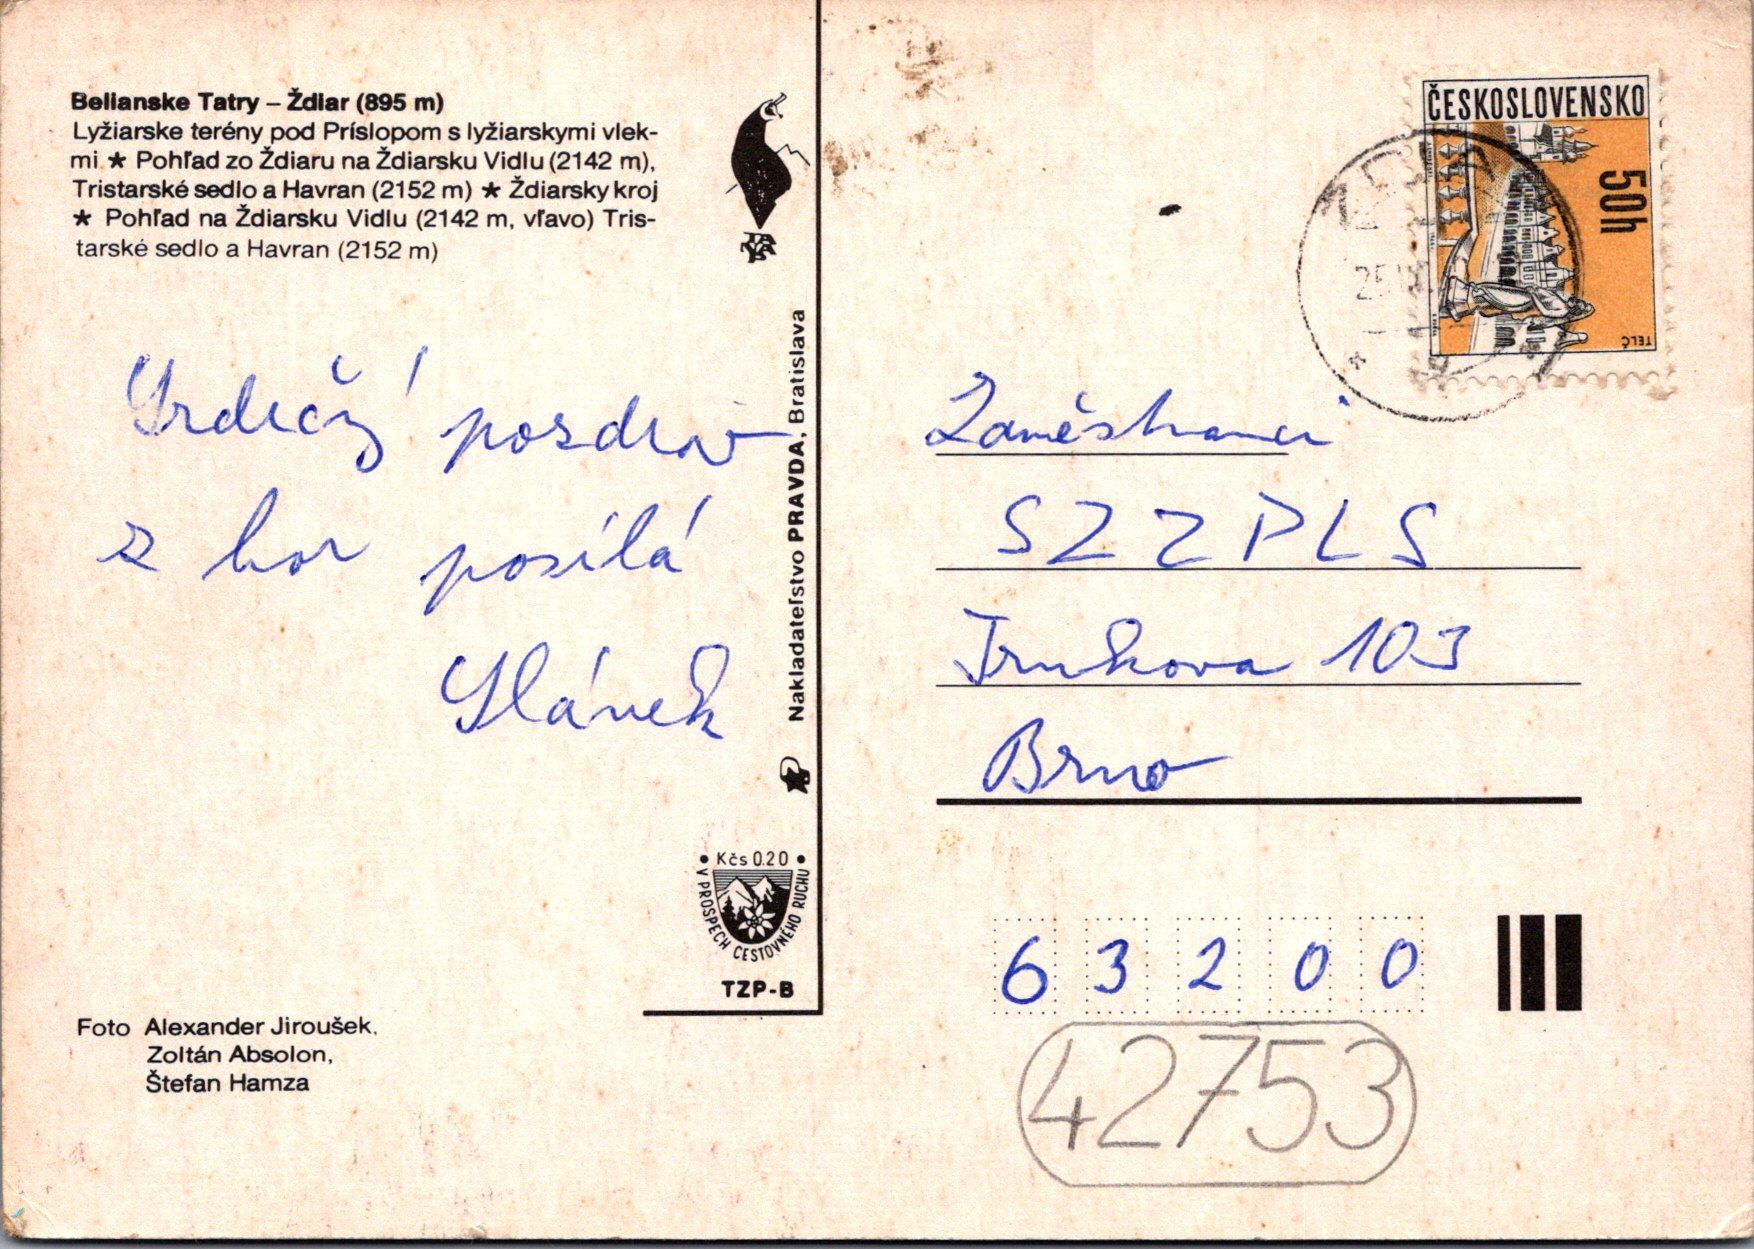 Belianske Tatry – Ždiar (895 m)
Lyžiarske terény pod Príslopom s lyžiarskymi vlek-
mi ★ Pohľad zo Ždiaru na Ždiarsku Vidlu (2142 m),
Tristarské sedlo a Havran (2152 m) ★ Ždiarsky kroj
★ Pohľad na Ždiarsku Vidlu (2142 m, vľavo) Tris-
tarské sedlo a Havran (2152 m)
Srdečný pozdrav
z hor posílá
Slánek
Nakladateľstvo PRAVDA, Bratislava
• Kčs 0.20 •
V PROSPECH CESTOVNÉHO RUCHU
TZP-B
Foto Alexander Jiroušek,
Zoltán Absolon,
Štefan Hamza
ČESKOSLOVENSKO
50h
TELČ
25
Zaměstnanci
SZZPLS
Trnkova 103
Brno
63200
42753